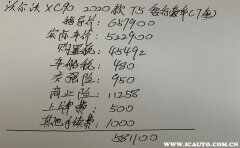 沃尔沃XC90 2020款 T5 智行豪华(7座)
指导价: 657900
实际车价: 522900
购置税: 45492
车船税: 480
交强险: 950
商业险: 11258
上牌费: 500
其他手续费: 1000
581100
爱车网
WWW.ICAUTO.COM.CN